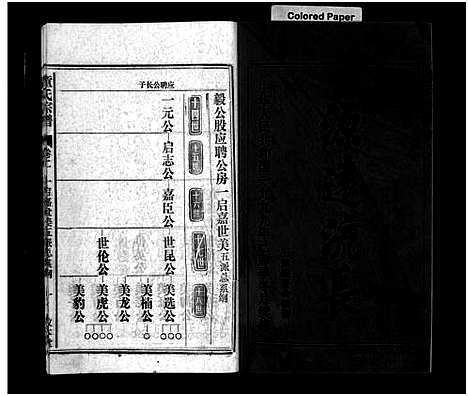 Colored Paper
毅公股应聘公房一启嘉世美五派总系纲
十四世
十五世
十六世
十七世
十八世
应聘公长子
一元公
启志公
嘉臣公
世昆公
美选公
美楠公
美龙公
世伦公
美虎公
美豹公
氏宗谱